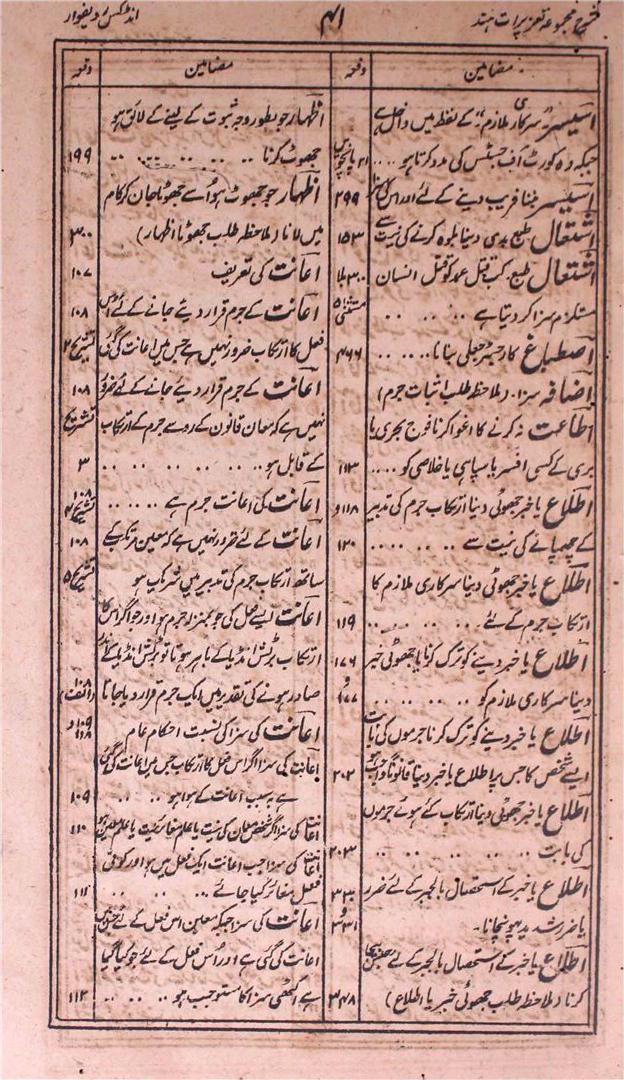 شرح مجموعہ تعزیرات ہند
۴۱
انڈکس ردیفوار
مضامین
دفعہ
اسیسر ”سرکاری ملازم“ کے لفظ میں داخل ہے
جبکہ وہ کورٹ آف جسٹس کی مدد کرتا ہو .... ۲۱ پانچویں
اسیسر بننا فریب دینے کے لئے اور اس کی سزا ۲۲۹
اشتعال طبع بدی دینا بلوہ کرنے کی نیت سے ۱۵۳
اشتعال طبع کب قتل عمد کو قتل انسان ۳۰۰
مستلزم سزا کر دیتا ہے .. .. .. .. مستثنیٰ ۱
اصطباغ کا رجسٹر جعلی بنانا .. .. .. ۴۶۶
اضافہ سزا۔ (ملاحظہ طلب اثبات جرم)
اطاعت نہ کرنے کا اغوا کرنا فوج بحری یا
بری کے کسی افسر یا سپاہی یا خلاصی کو .... ۱۱۳
اطلاع یا خبر جھوٹی دینا ارتکاب جرم کی تدبیر ۱۱۸ و
کے چھپانے کی نیت سے .. .. .. .. ۱۲۰
اطلاع یا خبر جھوٹی دینا سرکاری ملازم کا
ارتکاب جرم کے لئے .. .. .. .. ۱۱۹
اطلاع یا خبر دینے کو ترک کرنا یا جھوٹی خبر ۱۷۶
دینا سرکاری ملازم کو .. .. .. .. و ۱۷۷
اطلاع یا خبر دینے کو ترک کرنا جرموں کی بابت
ایسے شخص کا جس پر اطلاع یا خبر دینا قانوناً واجب ہو ۲۰۲
اطلاع یا خبر جھوٹی دینا ارتکاب کئے ہوئے جرموں
کی بابت .. .. .. .. .. ۲۰۳
اطلاع یا خبر کے استحصال بالجبر کے لئے ضرر ۳۳۰
یا ضرر شدید پہونچانا۔ و ۳۳۱
اطلاع یا خبر کے استحصال بالجبر کے لئے حبس بیجا
کرنا (ملاحظہ طلب جھوٹی خبر یا اطلاع) ۳۴۸
مضامین
دفعہ
اظہار جو بطور وجہ ثبوت کے لینے کے لائق ہو
جھوٹ کرنا .. .. .. .. .. ۱۹۹
اظہار جو جھوٹ ہو اُسے جھوٹا جان کر کام
میں لانا (ملاحظہ طلب جھوٹا اظہار) ۲۰۰
اعانت کی تعریف ۱۰۷
اعانت کے جرم قرار دیئے جانے کے لئے اُس ۱۰۸
فعل کا ارتکاب ضرور نہیں ہے جس میں اعانت کی گئی تشریح ۲
اعانت کے جرم قرار دیئے جانے کے لئے ضرور ۱۰۸
نہیں ہے کہ معان قانون کے رو سے جرم کے ارتکاب تشریح
کے قابل ہو .. .. .. .. .. .. ۳
اعانت کی اعانت جرم ہے .. .. .. ۱۰۸ تشریح ۴
اعانت کے لئے ضرور نہیں ہے کہ معین مرتکب کے ۱۰۸
ساتھ ارتکاب جرم کی تدبیر میں شریک ہو تشریح ۵
اعانت ایسے فعل کی جو بمنزلہ جرم ہو اور جو اگر اس کا
ارتکاب برٹش انڈیا کے باہر ہوتا تو برٹش انڈیا کے اندر
صادر ہونے کی تقدیر میں ایک جرم قرار دیا جاتا ۱۰۸ (الف)
اعانت کی سزا کی نسبت احکام عام ۱۰۹ و ۱۱۸
اعانت کی سزا اگر اُس فعل کا ارتکاب جس میں اعانت کی گئی
ہے بہ سبب اعانت کے ہوا ہو .. .. ۱۰۹
اعانت کی سزا اگر شخص معان کی نیت یا علم مغائر نیت یا علم معین ہو ۱۱۰
اعانت کی سزا جب اعانت ایک فعل میں ہو اور کوئی
فعل مغائر کیا جائے .. .. .. .. ۱۱۱
اعانت کی سزا جبکہ معین اس فعل کے لئے جس میں
اعانت کی گئی ہے اور اُس فعل کے لئے جو کیا گیا
ہے اکٹھی سزا کا مستوجب ہو .. .. .. ۱۱۲